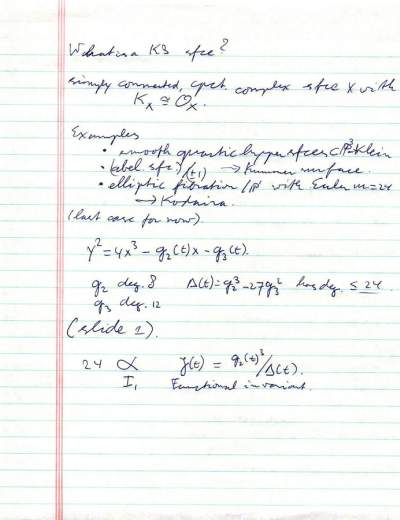 What is a K3 sfce?
simply connected, cpct. complex sfce X with
K_X ≅ O_X.
Examples
• smooth quartic hypersfces ⊂ P³ Klein
• (abel. sfc)/(±1) → Kummer surface.
• elliptic fibration /P¹ with Euler n=24
→ Kodaira.
(last case for now).
y² = 4x³ - g₂(t)x - g₃(t).
g₂ deg. 8 Δ(t) = g₂³ - 27g₃² has deg. ≤ 24
g₃ deg. 12
(slide 1).
24 ∝ J(t) = g₂(t)³/Δ(t).
I₁ Functional invariant.